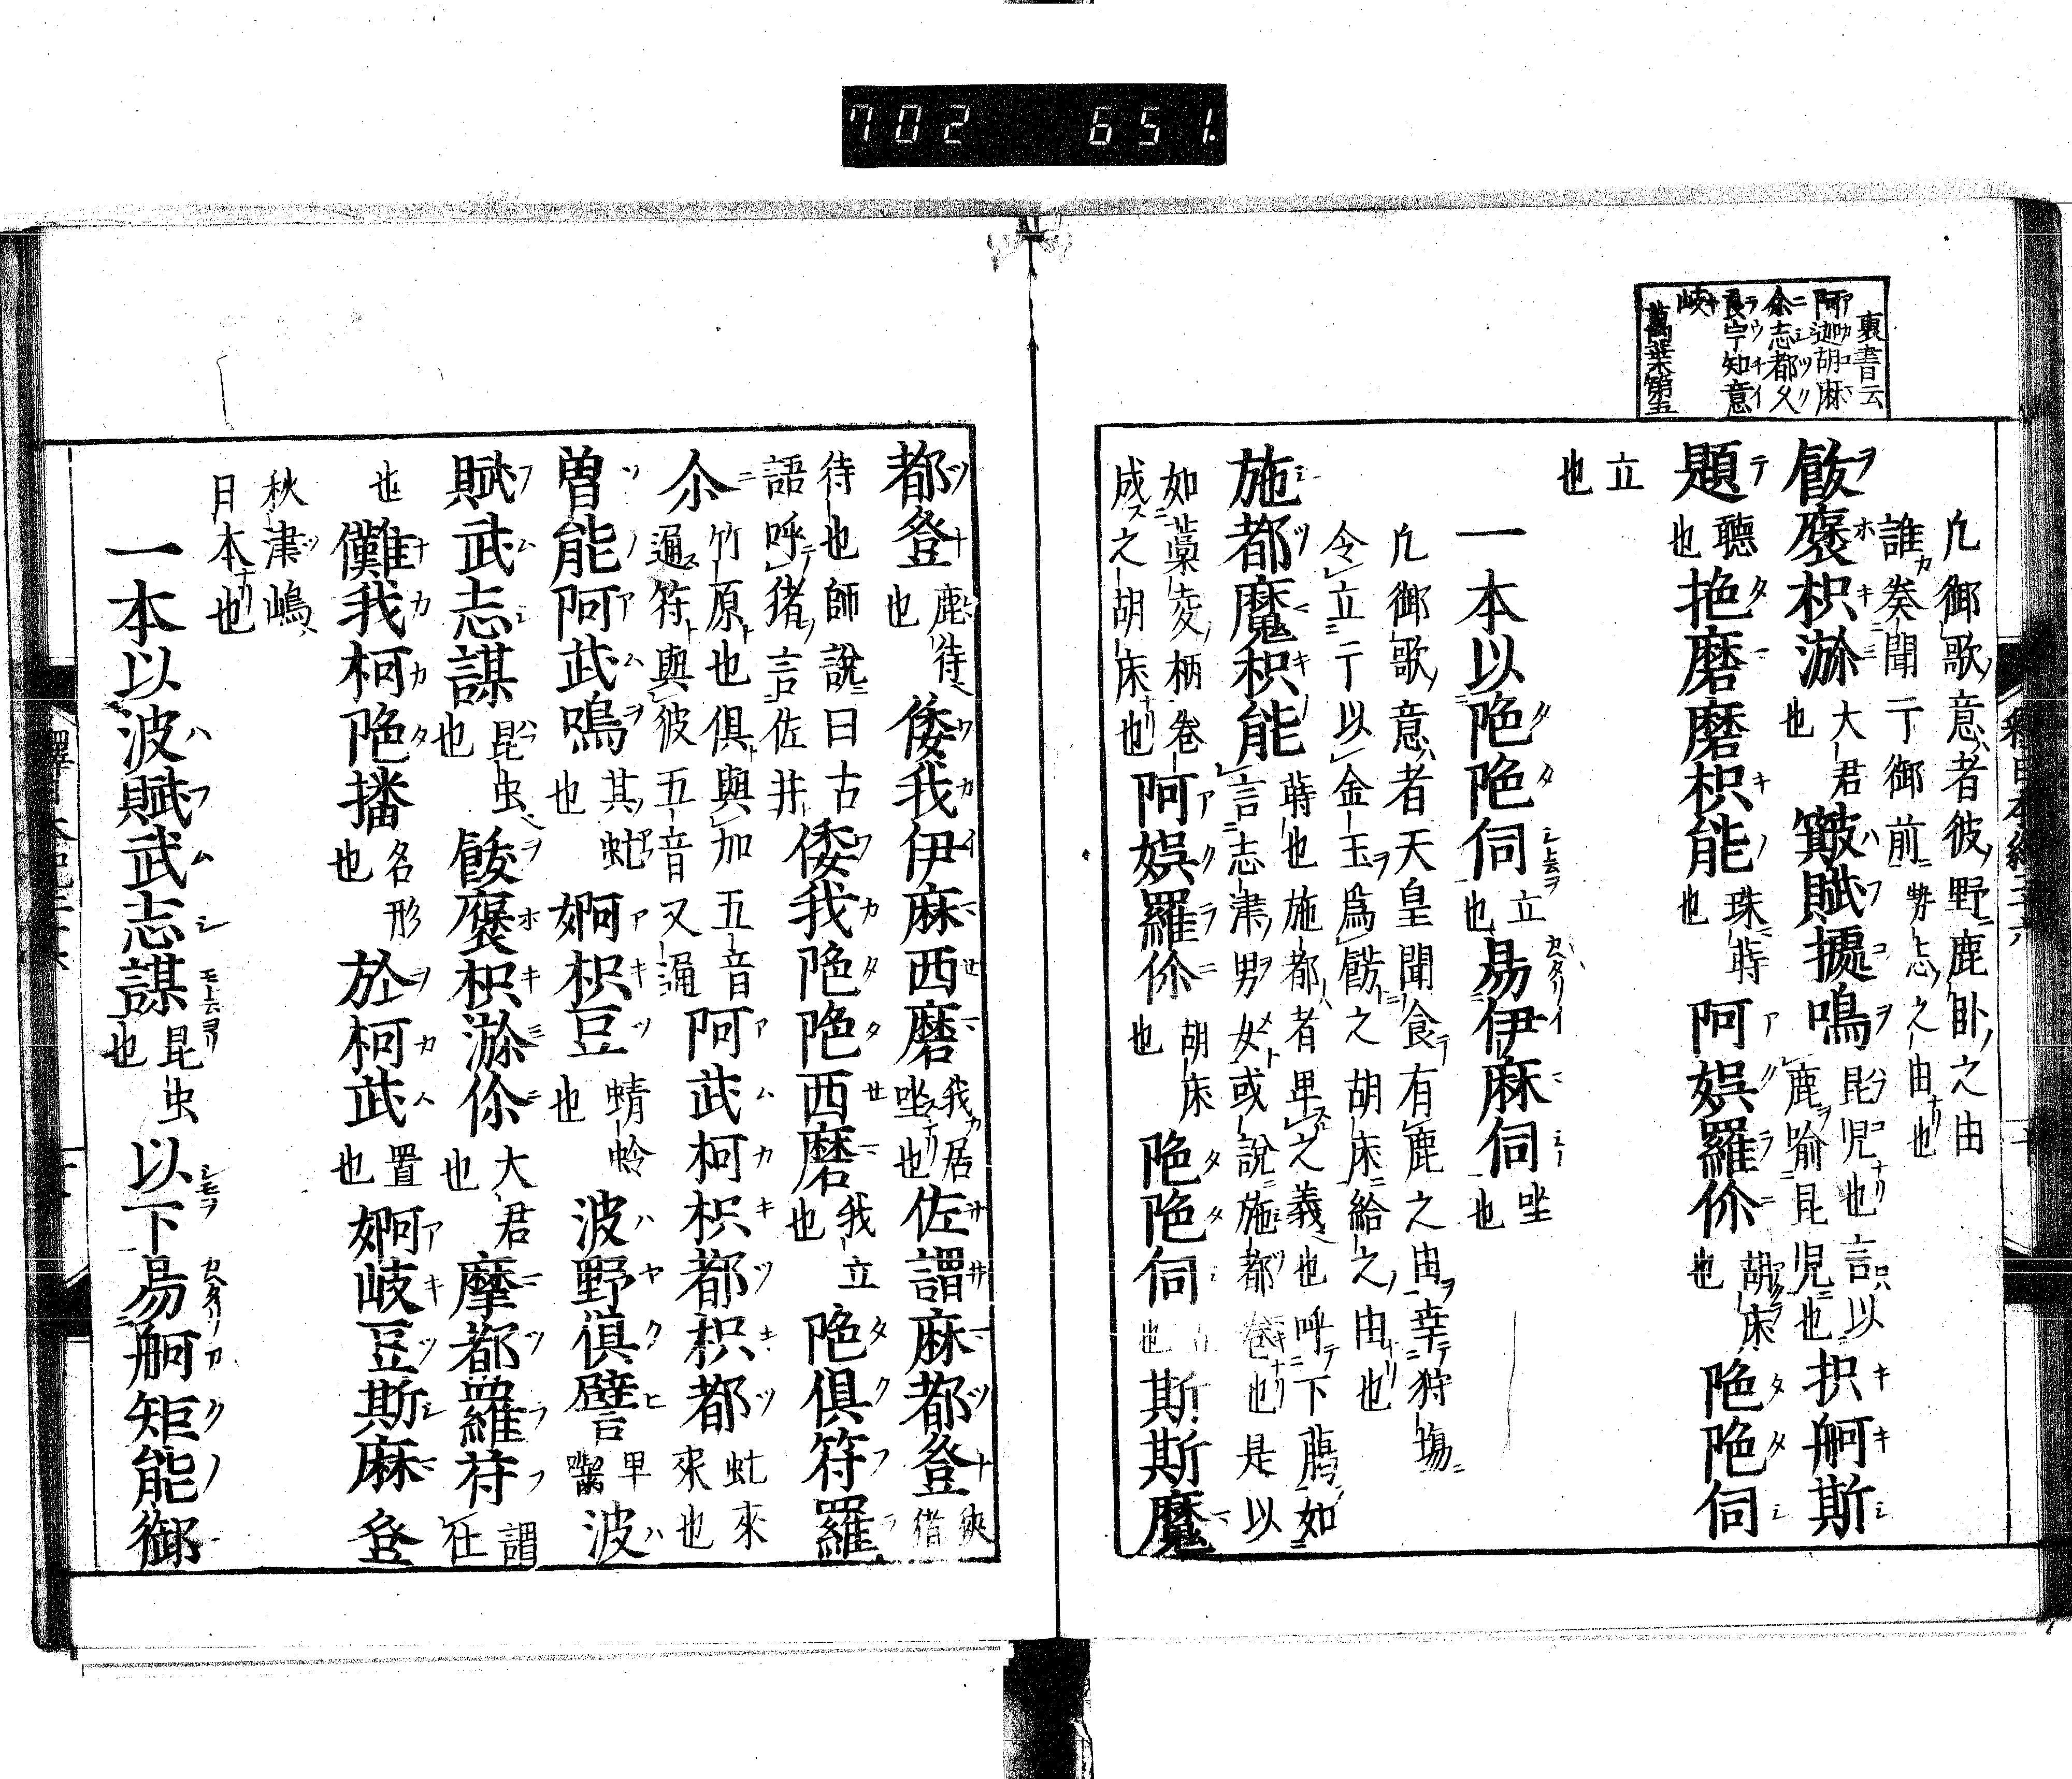 702 651.
裏書云
阿迦胡麻
尒志都夂
良宇知意
岐
萬葉第五
凢御歌意者彼野鹿卧之由
誰奏聞一丁御前㔟志之由也
飫裒枳瀰 大君也 簸賦據嗚 昆児也言以鹿喩昆児也 枳舸斯
題 聴也 拕磨磨枳能 珠蒔也 阿娯羅伱 胡床也 陁陁伺
立也
一本以陁陁伺 立也 易伊麻伺 坐也
凢御歌意者天皇聞食有鹿之由幸狩場
令立丁以金玉為餝之胡床給之由也
施都魔枳能 蒔也施都者卑之義也呼下﨟如言志津男女或說施都卷也是以
如藁麦柄卷成之胡床也 阿娯羅伱 胡床也 陁陁伺 也 斯斯魔
都登 鹿待也 倭我伊麻西磨 我居坐也 佐謂麻都登 猪
待也師說曰古語呼猪言佐井 倭我陁陁西磨 我立也 陁倶符羅
尒 竹原也倶與加五音通符與彼五音又通 阿武柯枳都枳都 虻來來也
曽能阿武嗚 其虻也 婀枳豆 蜻蛉也 波野倶譬 早囓 波
賦武志謀 昆虫也 飫裒枳瀰伱 大君也 摩都羅符 謂仕
也 儺我柯陁播 名形也 於柯武 置也 婀岐豆斯麻登
秋津嶋日本也
一本以波賦武志謀 昆虫也 以下易舸矩能御